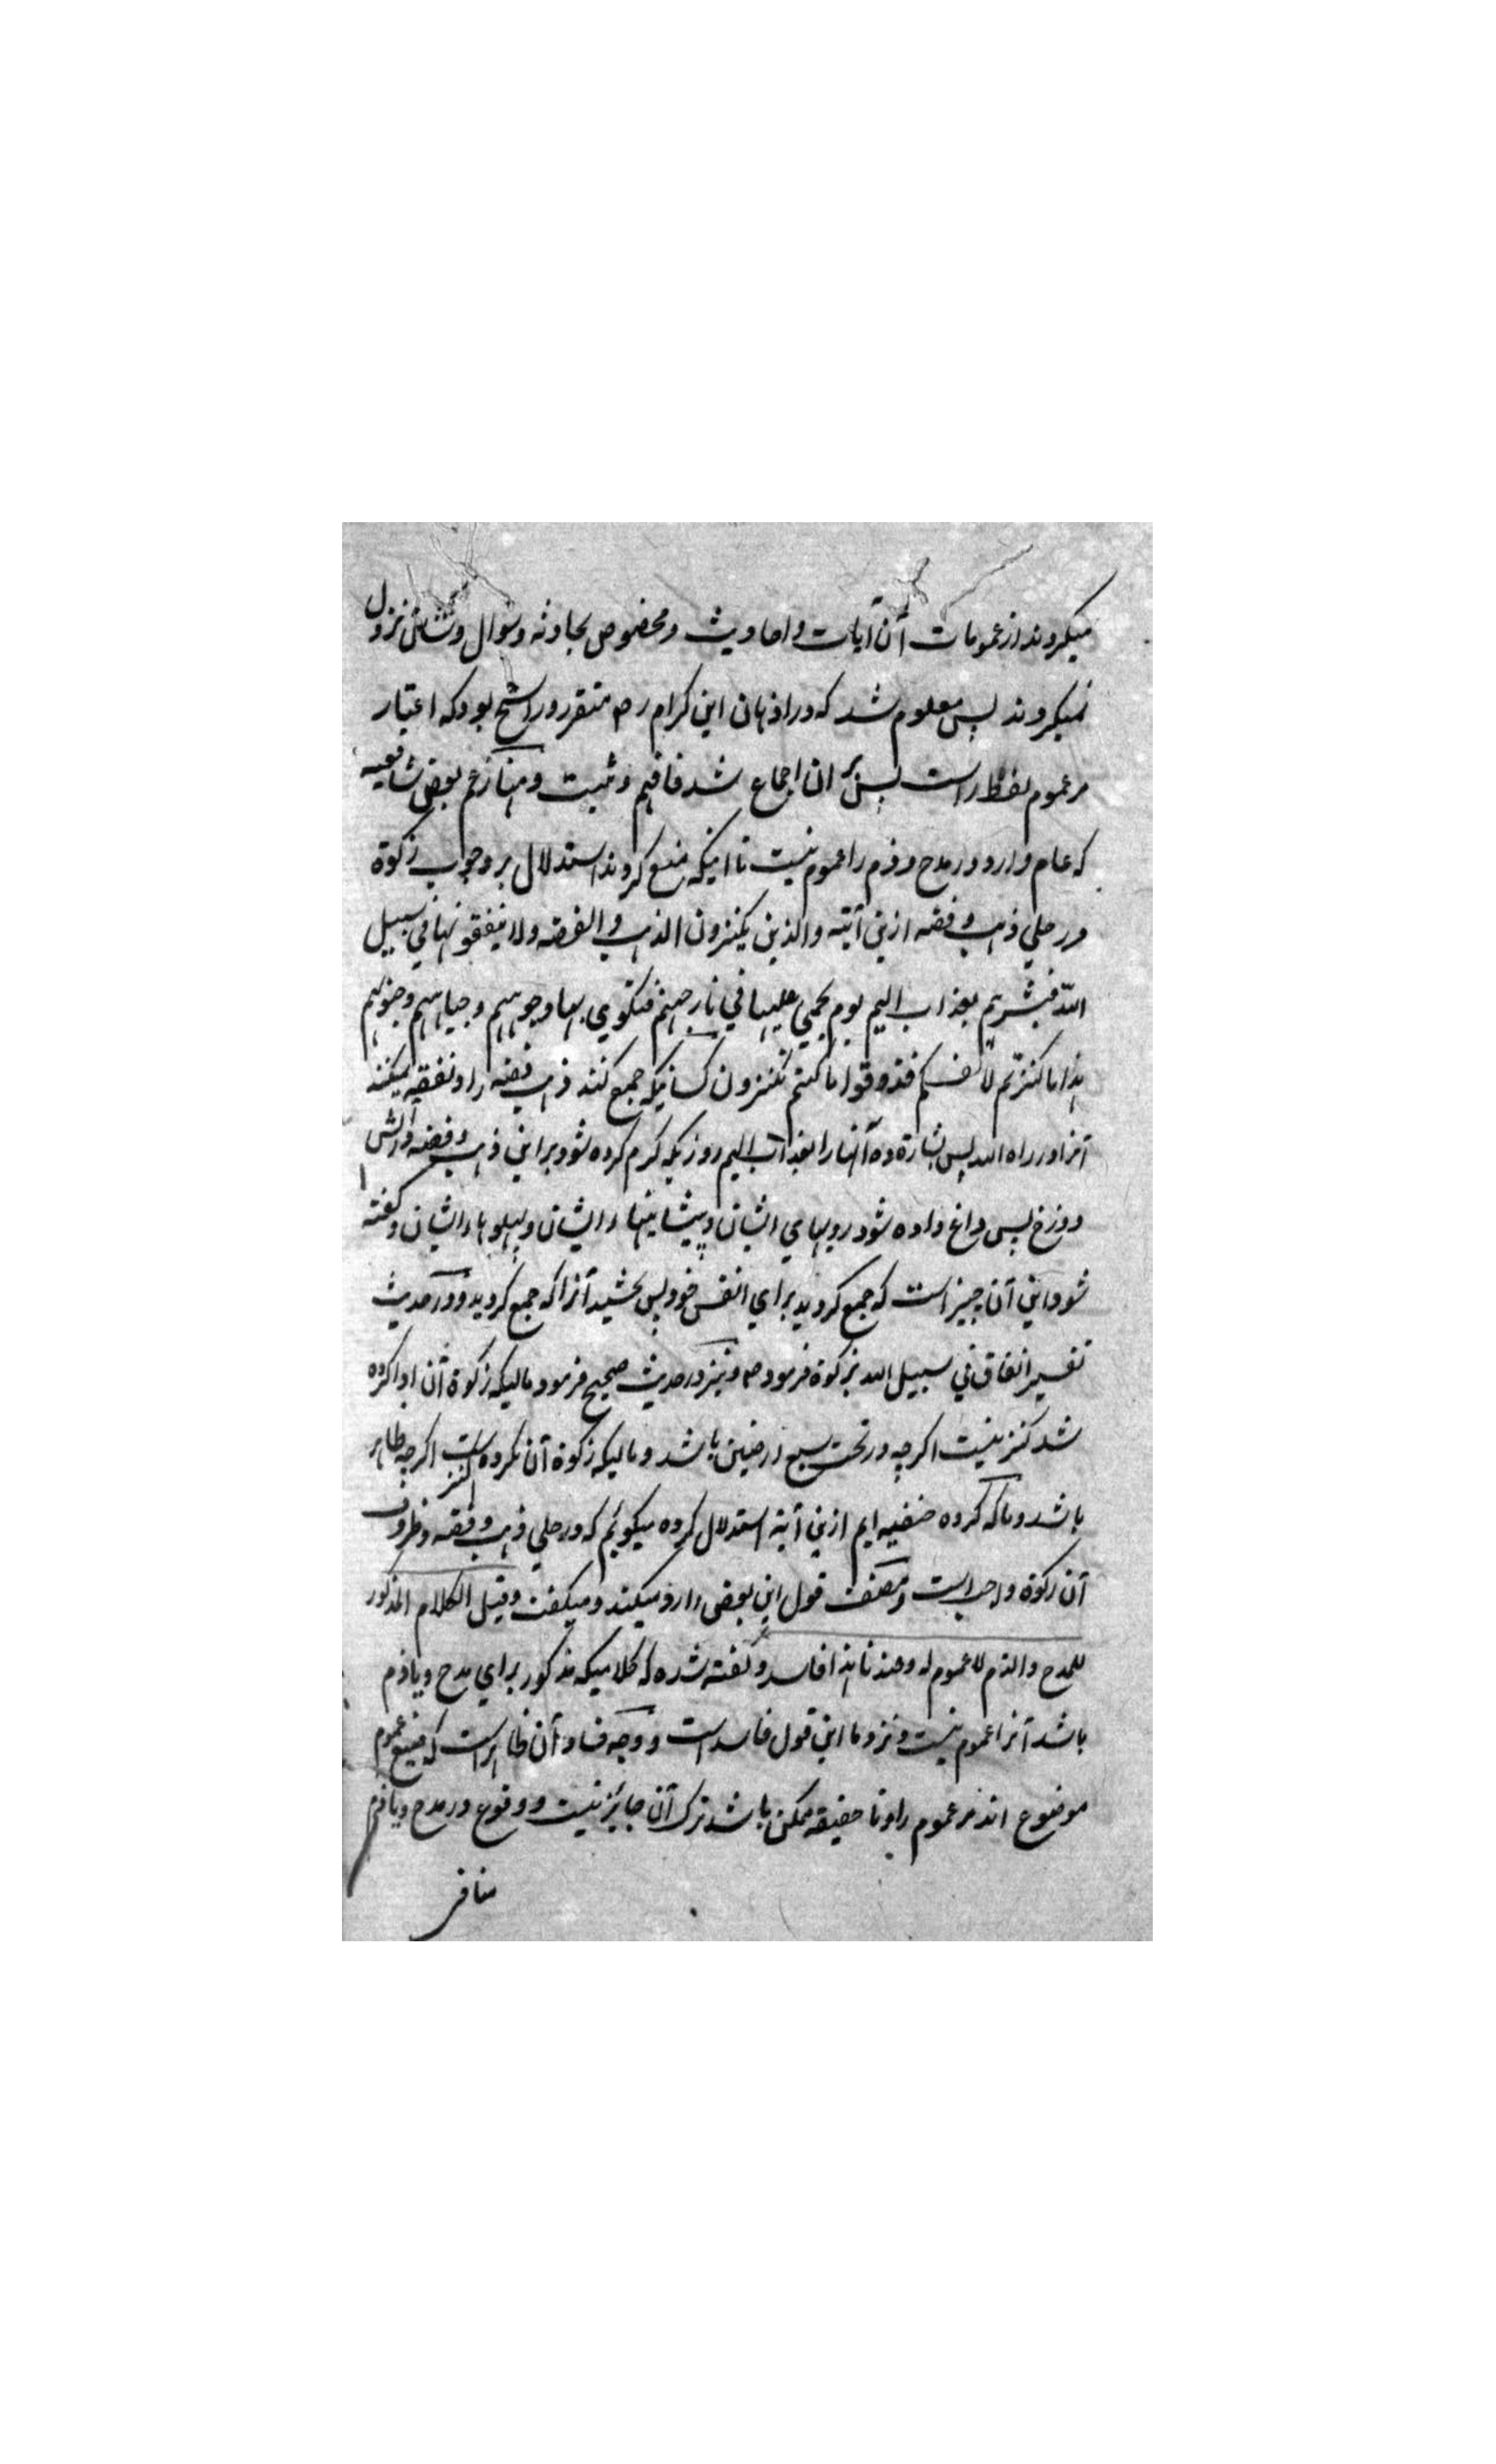 میکردند از عمومات آن آیات و احادیث و مخصوص بحادثه و سوال و شان نزول
نمیکردند پس معلوم شد که در اذهان این کرام رض متقرر و راسخ بود که اعتبار
مر عموم لفظ راست پس بر ان اجماع شد فافهم و ثبت و بهنا زعم بعض شافعیه
که عام وارد در مدح و ذم را عموم نیست تا اینکه منع کردند استدلال بر وجوب زکوة
در حلی ذهب و فضه ازین آیته والذین یکنزون الذهب والفضه ولا ینفقونها فی سبیل
الله فبشرهم بعذاب الیم یوم یحمی علیها فی نار جهنم فتکوی بها وجوههم وجباههم وجنوبهم
هذا ما کنزتم لانفسکم فذوقوا ما کنتم تکنزون کسانیکه جمع کنند ذهب فضه را و نفقه نمیکنند
آنرا در راه الله پس بشارة ده آنها را بعذاب الیم روزیکه گرم کرده شود بر این ذهب و فضه در آتش
دوزخ پس داغ داده شود رویهای ایشان و پیشانیهاء ایشان و پهلوهاء ایشان و گفته
شود این آن چیز است که جمع کردید برای انفس خود پس بچشید آنرا که جمع کردید و در حدیث
تفسیر انفاق فی سبیل الله بزکوة فرمود ص و نیز در حدیث صحیح فرمود مالیکه زکوة آن ادا کرده
شد کنز نیست اگرچه در تحت سبع ارضین باشد و مالیکه زکوة آن نکرده است کنز اگرچه ظاهر
باشد و ما که گروه حنفیه ایم ازین آیة استدلال کرده میگوئیم که در حلی ذهب و فضه و ظروف
آن زکوة واجب است و مصنف قول این بعض را رد میکند و میگفت وقیل الکلام المذکور
للمدح والذم لا عموم له وعندنا هذا فاسد و گفته شده که کلامیکه مذکور برای مدح و یا ذم
باشد آنرا عموم نیست و نزد ما این قول فاسد است و وجه فساد آن ظاهر است که صیغ عموم
موضوع اند مر عموم را و تا حقیقه ممکن باشد ترک آن جایز نیست و وقوع در مدح و یا ذم
منافی